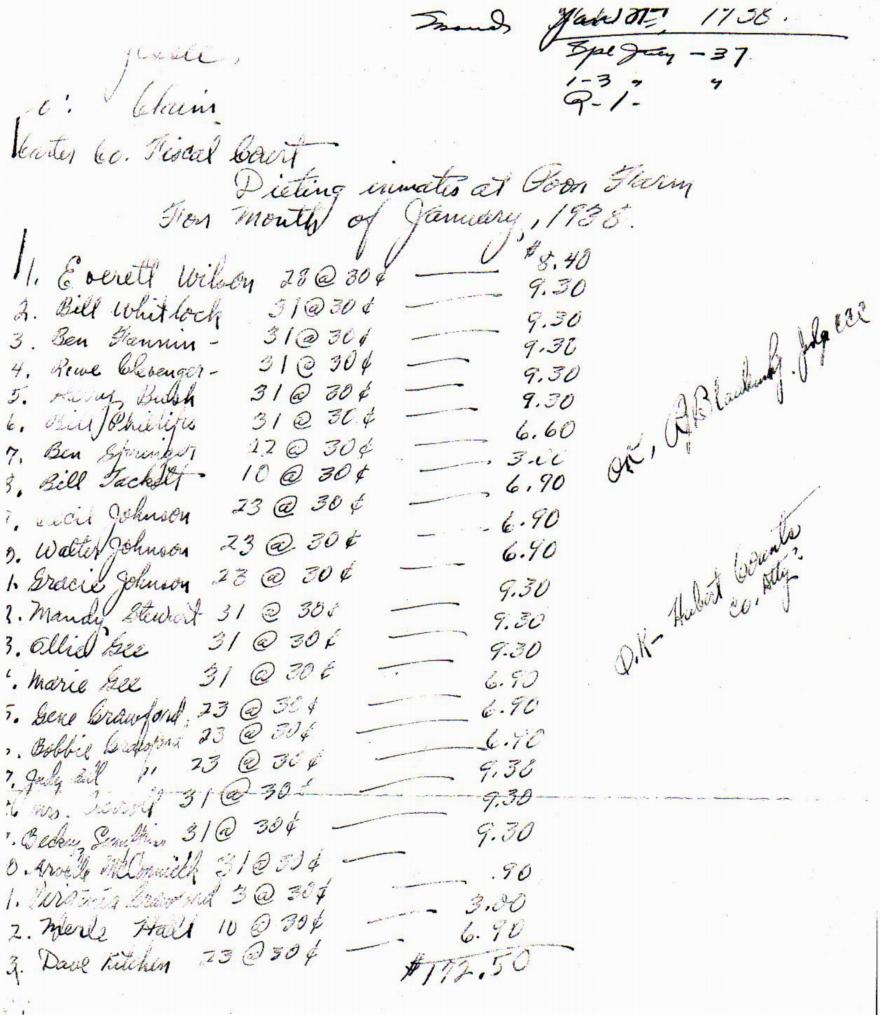 Issued
1938.
Spe Jay - 37
1-3 " "
Q-1-
Claim
Carter Co. Fiscal Court
Dieting inmates at Poor Farm
For Month of January, 1938.
1. Everett Wilson 28 @ 30¢ — $8.40
2. Bill Whitlock 31 @ 30¢ — 9.30
3. Ben Fannin - 31 @ 30¢ — 9.30
4. Clevenger - 31 @ 30¢ — 9.30
5. Bush 31 @ 30¢ — 9.30
6. Bill Phillips 31 @ 30¢ — 9.30
7. Ben Springer 22 @ 30¢ — 6.60
8. Bill Tackett - 10 @ 30¢ — 3.00
Cecil Johnson 23 @ 30¢ — 6.90
0. Walter Johnson 23 @ 30¢ — 6.90
1. Gracie Johnson 23 @ 30¢ — 6.90
2. Mandy Stewart 31 @ 30¢ — 9.30
3. Ollie Gee 31 @ 30¢ — 9.30
Marie Gee 31 @ 30¢ — 9.30
5. Gene Crawford 23 @ 30¢ — 6.90
Bobbie Crawford 23 @ 30¢ — 6.90
7. Judy " 23 @ 30¢ — 6.90
Mrs. 31 @ 30¢ — 9.30
Becky 31 @ 30¢ — 9.30
0. McCormick 31 @ 30¢ — 9.30
1. Virginia Crawford 3 @ 30¢ — .90
2. Merle Hall 10 @ 30¢ — 3.00
3. Dave Kitchen 23 @ 30¢ — 6.90
$172.50
OK,
O.K - Hubert Counts
Co. Atty